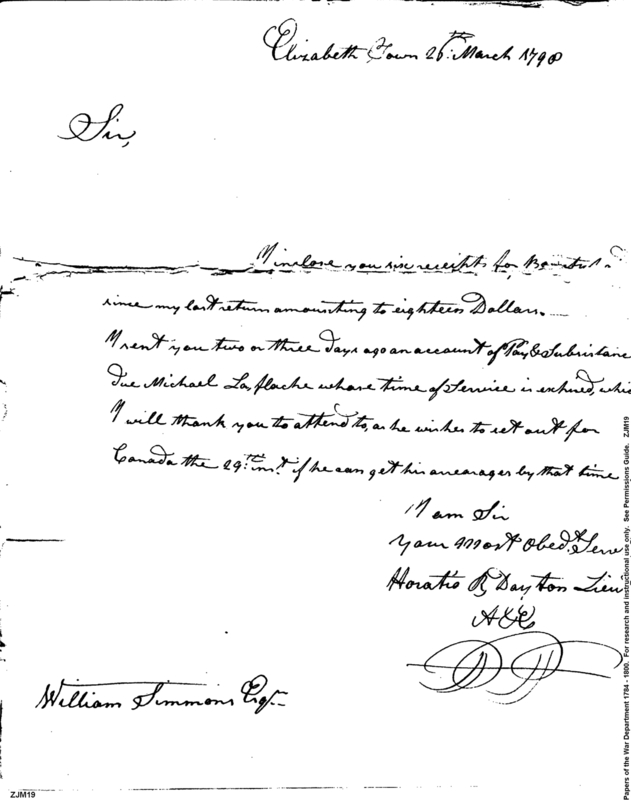 Elizabeth Town 26th March 1798
Sir,
I inclose you six receipts for
since my last return amounting to eighteen Dollars.
I sent you two or three days ago an account of Pay & Subsistance
due Michael Laflache whose time of Service is expired, whi
I will thank you to attend to, as he wishes to set out for
Canada the 29th inst. if he can get his arrearages by that time
I am Sir
Your Most Obedt. Serv
Horatio R Dayton Lieu
A&E
William Simmons Esqr.
ZJM19
Papers of the War Department 1784 - 1800. For research and instructional use only. See Permissions Guide. ZJM19